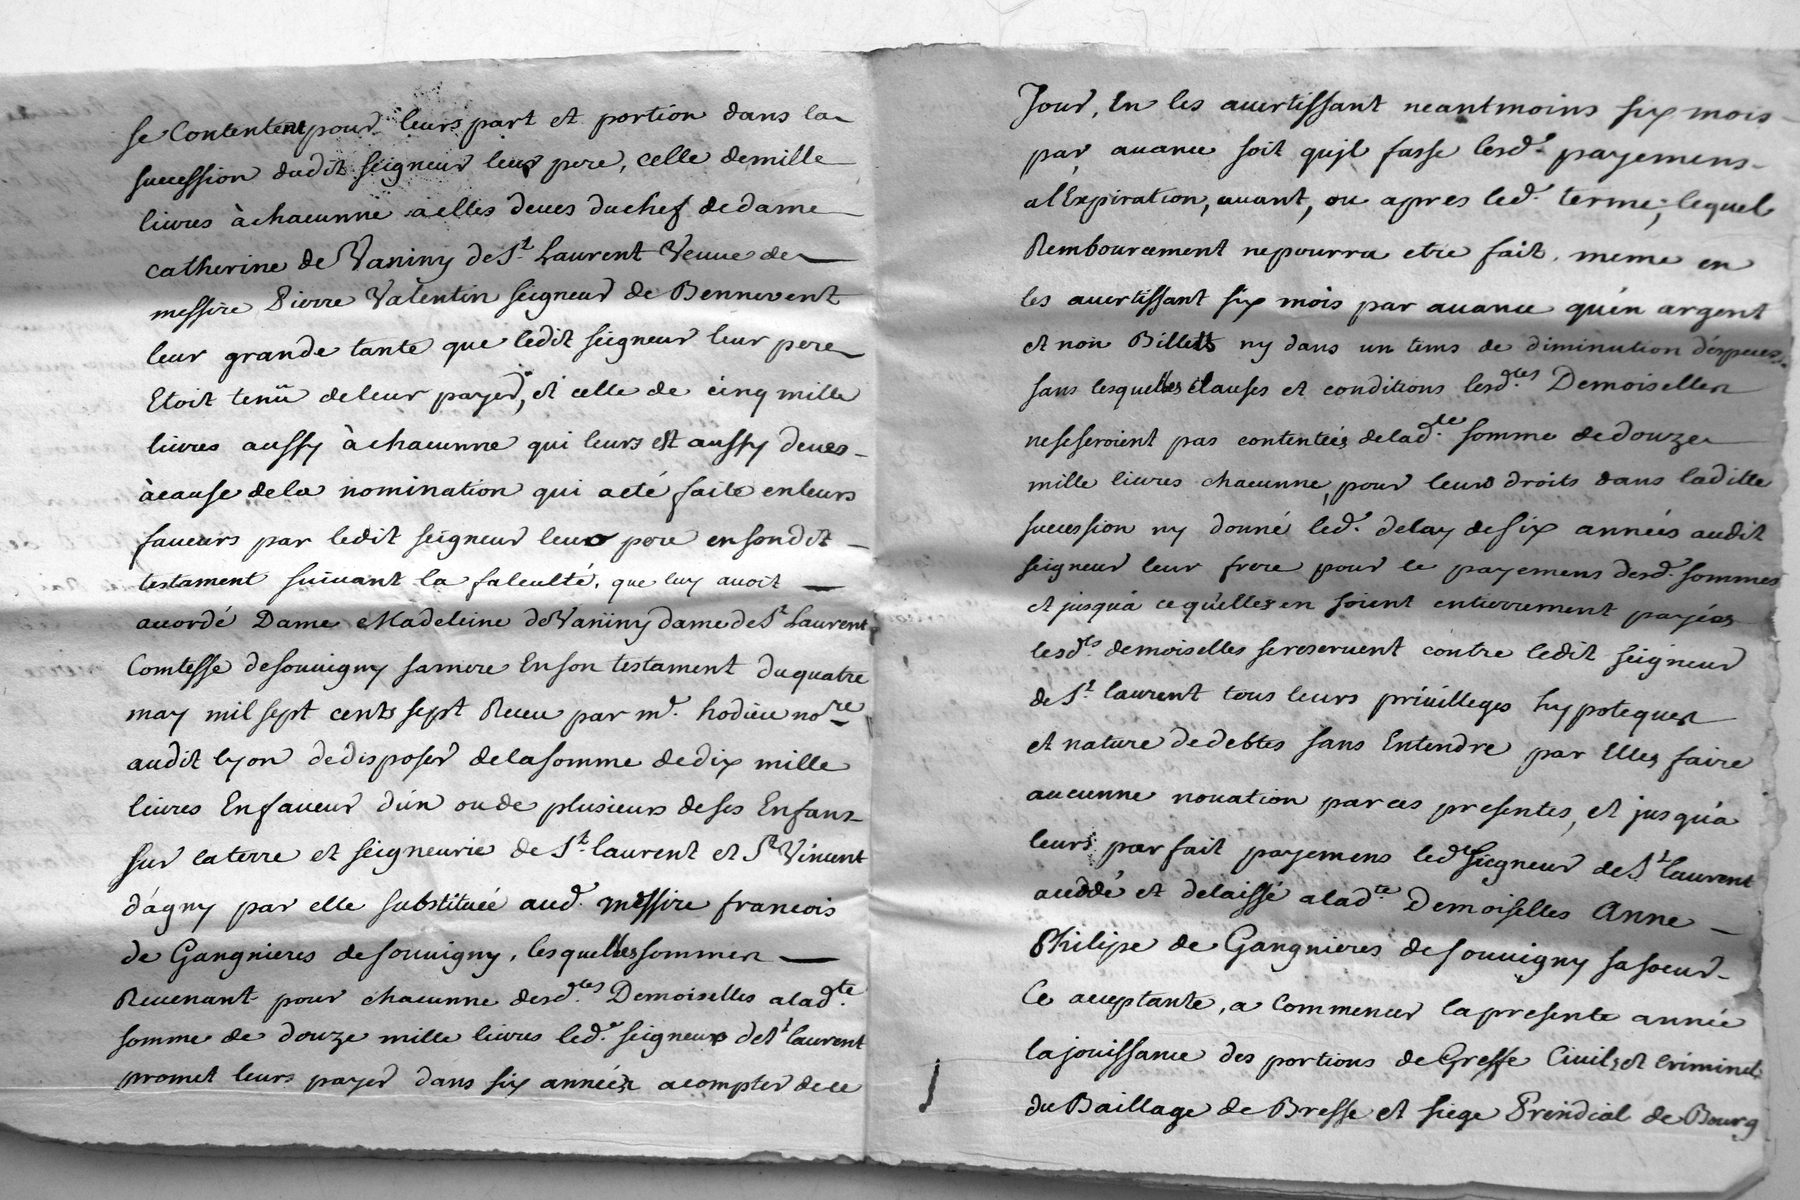 se Contentent pour leurs part et portion dans la
succession dudit seigneur leur pere, celle demille
livres à chacunne a elles deues duchef dedame
catherine de Vaniny de St. Laurent Veuve de
messire Pierre Valentin seigneur de Bennevent
leur grande tante que ledit seigneur leur pere
Etoit tenû deleur payer, et celle de cinq mille
livres aussy à chacunne qui leurs est aussy deues
àcause dela nomination qui aeté faite enleurs
faveurs par ledit seigneur leur pere ensondit
testament suivant la faleulté, que luy avoit
acordé Dame Madeleine deVaniny dame de St Laurent
Comtesse desouvigny samere Enson testament duquatre
may mil sept cents sept Receu par mr. hodieu nore
audit lyon dedisposer delasomme dedix mille
livres Enfaveur dún oude plusieurs deses Enfans
sur laterre et seigneurie de St. laurent et St Vincent
dágny par elle substituée aud. messire francois
de Gangnieres desouvigny, lesquelles sommes
Revenant pour chacunne desd.tes Demoiselles alad.te
somme de douze mille livres led. seigneur de St laurent
promet leurs payer dans six années acompter dece
Jour, En les avertissant neantmoins six mois
par avance soit qujl fasse lesd. payemens
a l'Expiration, avant, ou apres led. terme, lequel
Rembourcement nepourra etre fait, meme en
les avertissant six mois par avance qu'en argent
et non Billets ny dans un tems de diminution d'especes
sans lesquelles clauses et conditions lesd.tes Demoiselles
neseseroient pas contentées delad.te somme dedouze
mille livres chacunne, pour leurs droits dans ladille
succession ny donné led. delay desix années audit
seigneur leur frere pour le payemens desd. sommes
et jusquá cequélles en soient entierrement payées
lesd.es demoiselles sereservent cóntre ledit seigneur
de St. laurent tous leurs privilleges hypoteques
et nature dedebtes sans Entendre par Elles faire
aucunne novation parces presentes, et jusquá
leurs parfait payemens led. seigneur de St laurent
aceddé et delaissé alad.te Demoiselles Anne
Philipe de Gangnieres desouvigny sasoeur
Ce aceptante, a Commencer lapresente année
lajouissance des portions de Greffe Civil, et criminel
du Baillage de Bresse et siege Presidial de Bourg